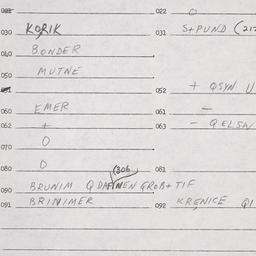 021 022 O
030 KORIK 031 S+PUND (212
040 BONDER
050 MUTNE
051 052 + QSYN U
060 EMER 061 -
062 + 063 - QELSN
070 O
080 O (306 081
090 BRUNIM Q DAFINEN GROB+TIF
091 BRINIMER 092 KRENICE QI